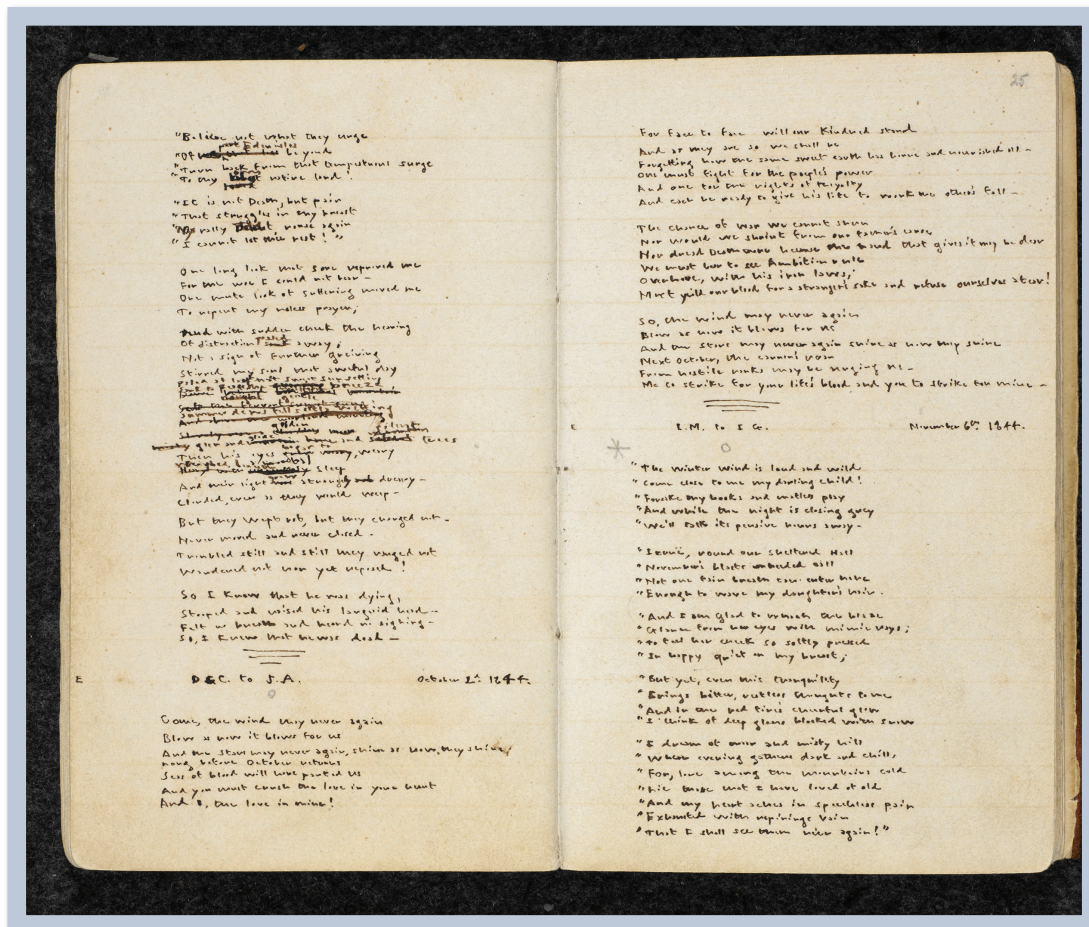 "Believe not what they urge
port Eden isles
"Of beyond
"Turn back from that tempestuous surge
"To thy native land!
"It is not Death, but pain
"That struggles in thy breast
rally rouse again
"I cannot let thee rest!"
One long look that sore reproved me
For the woe I could not bear -
One mute look of suffering moved me
To repent my useless prayer;
And with sudden check the heaving
Of distraction passed away;
Not a sign of further grieving
Stirred my soul that awful day
Paled at last the sweet sun setting
Sunk to peace the breeze
Summer dews fell softly wetting
glen and and silent trees
Then his eyes began to weary
Weighed beneath a mortal sleep
And their light grew strangely dreary -
Clouded, even as they would weep -
But they wept not, but they changed not -
Never moved and never closed -
Troubled still and still they ranged not
Wandered not nor yet reposed!
So I knew that he was dying,
Stooped and raised his languid head -
Felt no breath and heard no sighing -
So, I knew that he was dead -
E
D.G.C. to J.A.
October 2d. 1844.
Come, the wind may never again
Blow as now it blows for us
And the stars may never again, shine as now, they shine;
Long before October returns
Seas of blood will have parted us
And you must crush the love in your heart
And I, the love in mine!
25
For face to face will our Kindred stand
And as they are so we shall be
Forgetting how the same sweet earth has borne and nourished all -
One must fight for the people's power
And one for the rights of Royalty
And each be ready to give his life to work the others fall -
The chance of war we cannot shun
Nor would we shrink from our cause
Nor dread Death more because the hand that gives it may be dear
We must bear to see Ambition rule
Over love, with his iron laws;
Must yield our blood for a strangers sake and refuse ourselves a tear!
So, the wind may never again
Blow as now it blows for us
And the stars may never again shine as now they shine
Next October, the cannons roar
From hostile ranks may be urging us -
Me to strike for your life's blood and you to strike for mine -
E
E.M. to E G.
November 6th. 1844.
"The winter wind is loud and wild
"Come close to me my darling child!
"Forsake thy books and mateless play
"And while the night is closing grey
"We'll talk its pensive hours away -
"Iernë, round our sheltered Hall
"November's blasts unheeded call
"Not one faint breath can enter here
"Enough to wave my daughter's hair.
"And I am glad to watch the blaze
"Glance from her eyes with mimic rays;
"To feel her cheek so softly pressed
"In happy quiet on my breast;
"But yet, even this tranquility
"Brings bitter, restless thoughts to me
"And in the red fire's cheerful glow
"I think of deep glens blocked with snow
"I dream of moor and misty hill
"Where evening gathers dark and chill,
"For, lone among the mountains cold
"Lie those that I have loved of old
"And my heart aches in speechless pain
"Exhausted with repinings vain
"That I shall see them neer again!"